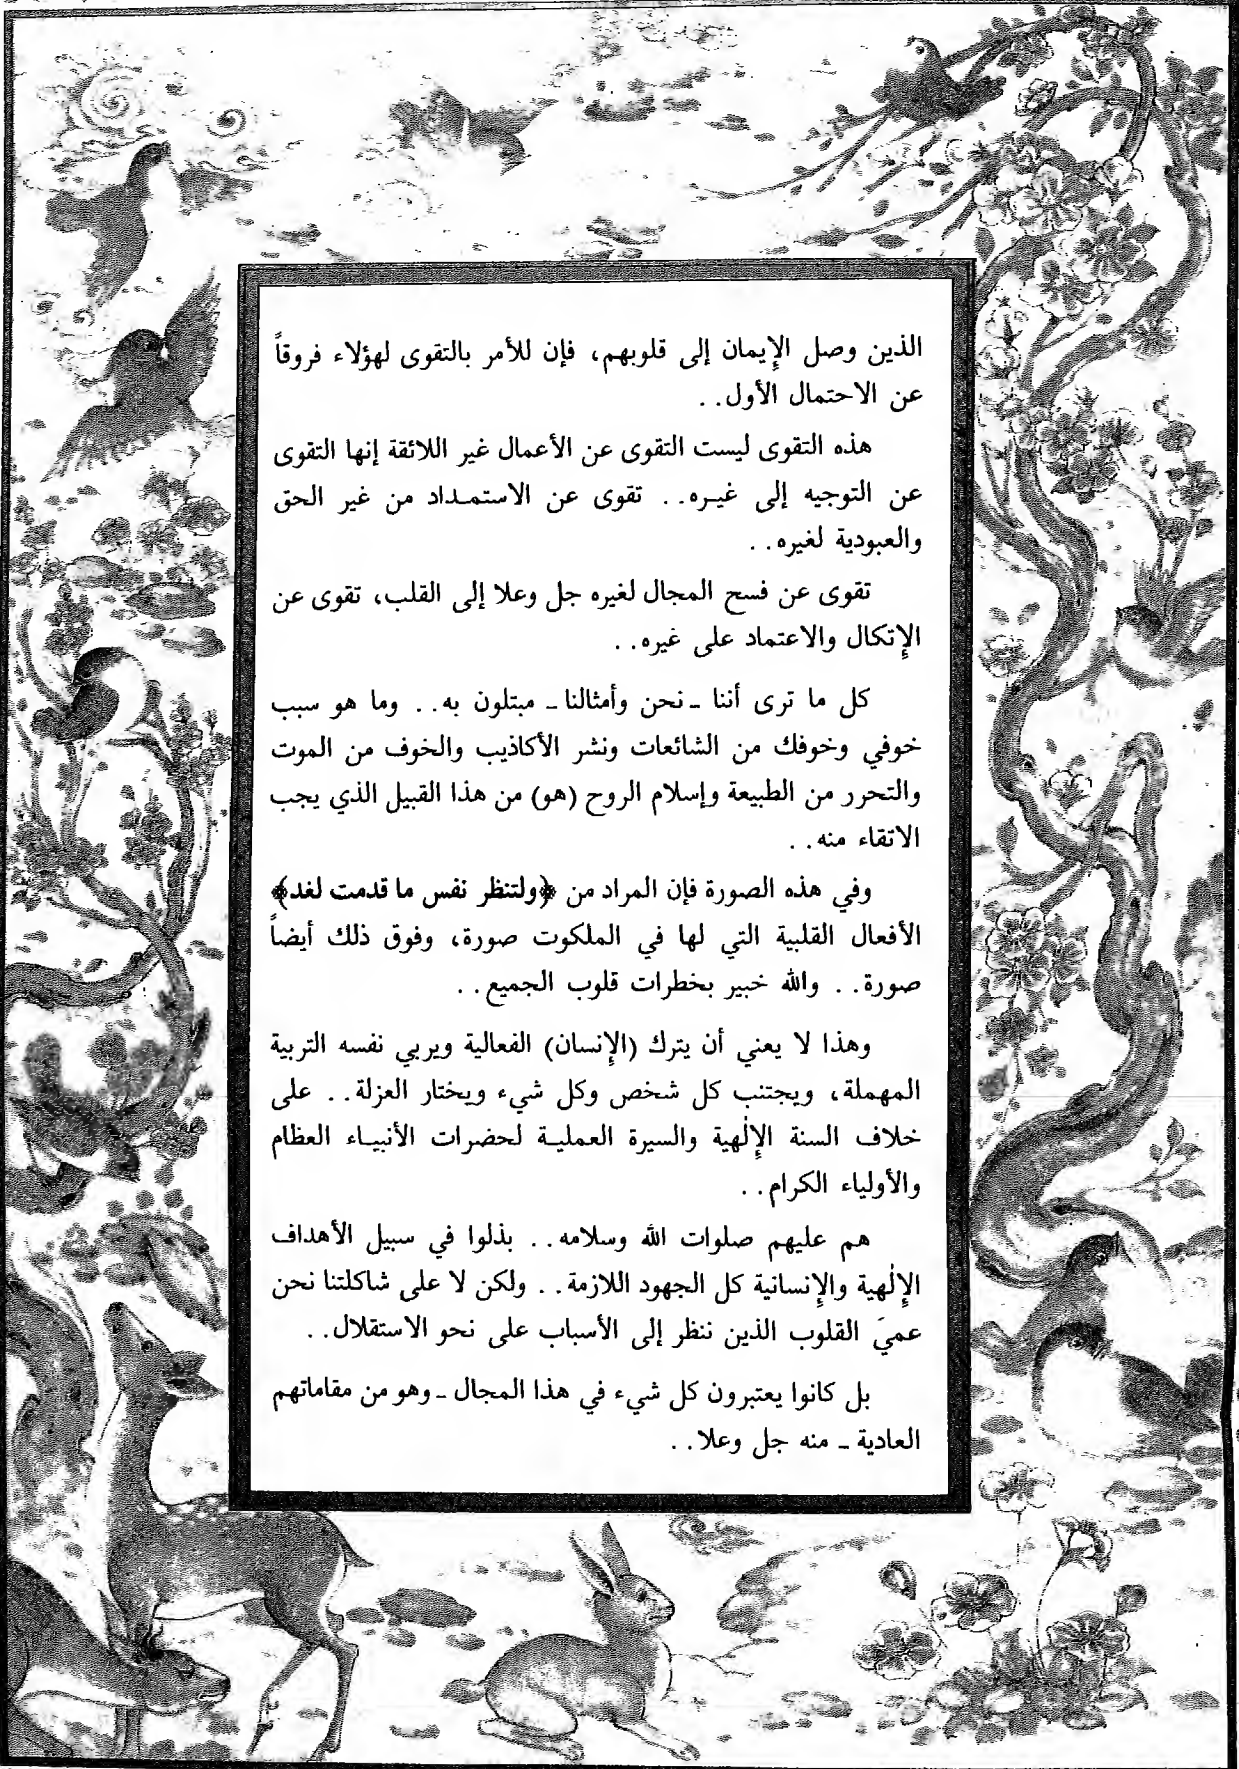 الذين وصل الإِيمان إلى قلوبهم، فإن للأمر بالتقوى لهؤلاء فروقاً
عن الاحتمال الأول..
هذه التقوى ليست التقوى عن الأعمال غير اللائقة إنها التقوى
عن التوجيه إلى غيره.. تقوى عن الاستمداد من غير الحق
والعبودية لغيره..
تقوى عن فسح المجال لغيره جل وعلا إلى القلب، تقوى عن
الإِتكال والاعتماد على غيره..
كل ما ترى أننا ـ نحن وأمثالنا ـ مبتلون به.. وما هو سبب
خوفي وخوفك من الشائعات ونشر الأكاذيب والخوف من الموت
والتحرر من الطبيعة وإسلام الروح (هو) من هذا القبيل الذي يجب
الاتقاء منه..
وفي هذه الصورة فإن المراد من ﴿ولتنظر نفس ما قدمت لغد﴾
الأفعال القلبية التي لها في الملكوت صورة، وفوق ذلك أيضاً
صورة.. والله خبير بخطرات قلوب الجميع..
وهذا لا يعني أن يترك (الإِنسان) الفعالية ويربي نفسه التربية
المهملة، ويجتنب كل شخص وكل شيء ويختار العزلة.. على
خلاف السنة الإِلٰهية والسيرة العملية لحضرات الأنبياء العظام
والأولياء الكرام..
هم عليهم صلوات الله وسلامه.. بذلوا في سبيل الأهداف
الإِلٰهية والإِنسانية كل الجهود اللازمة.. ولكن لا على شاكلتنا نحن
عميَ القلوب الذين ننظر إلى الأسباب على نحو الاستقلال..
بل كانوا يعتبرون كل شيء في هذا المجال ـ وهو من مقاماتهم
العادية ـ منه جل وعلا..